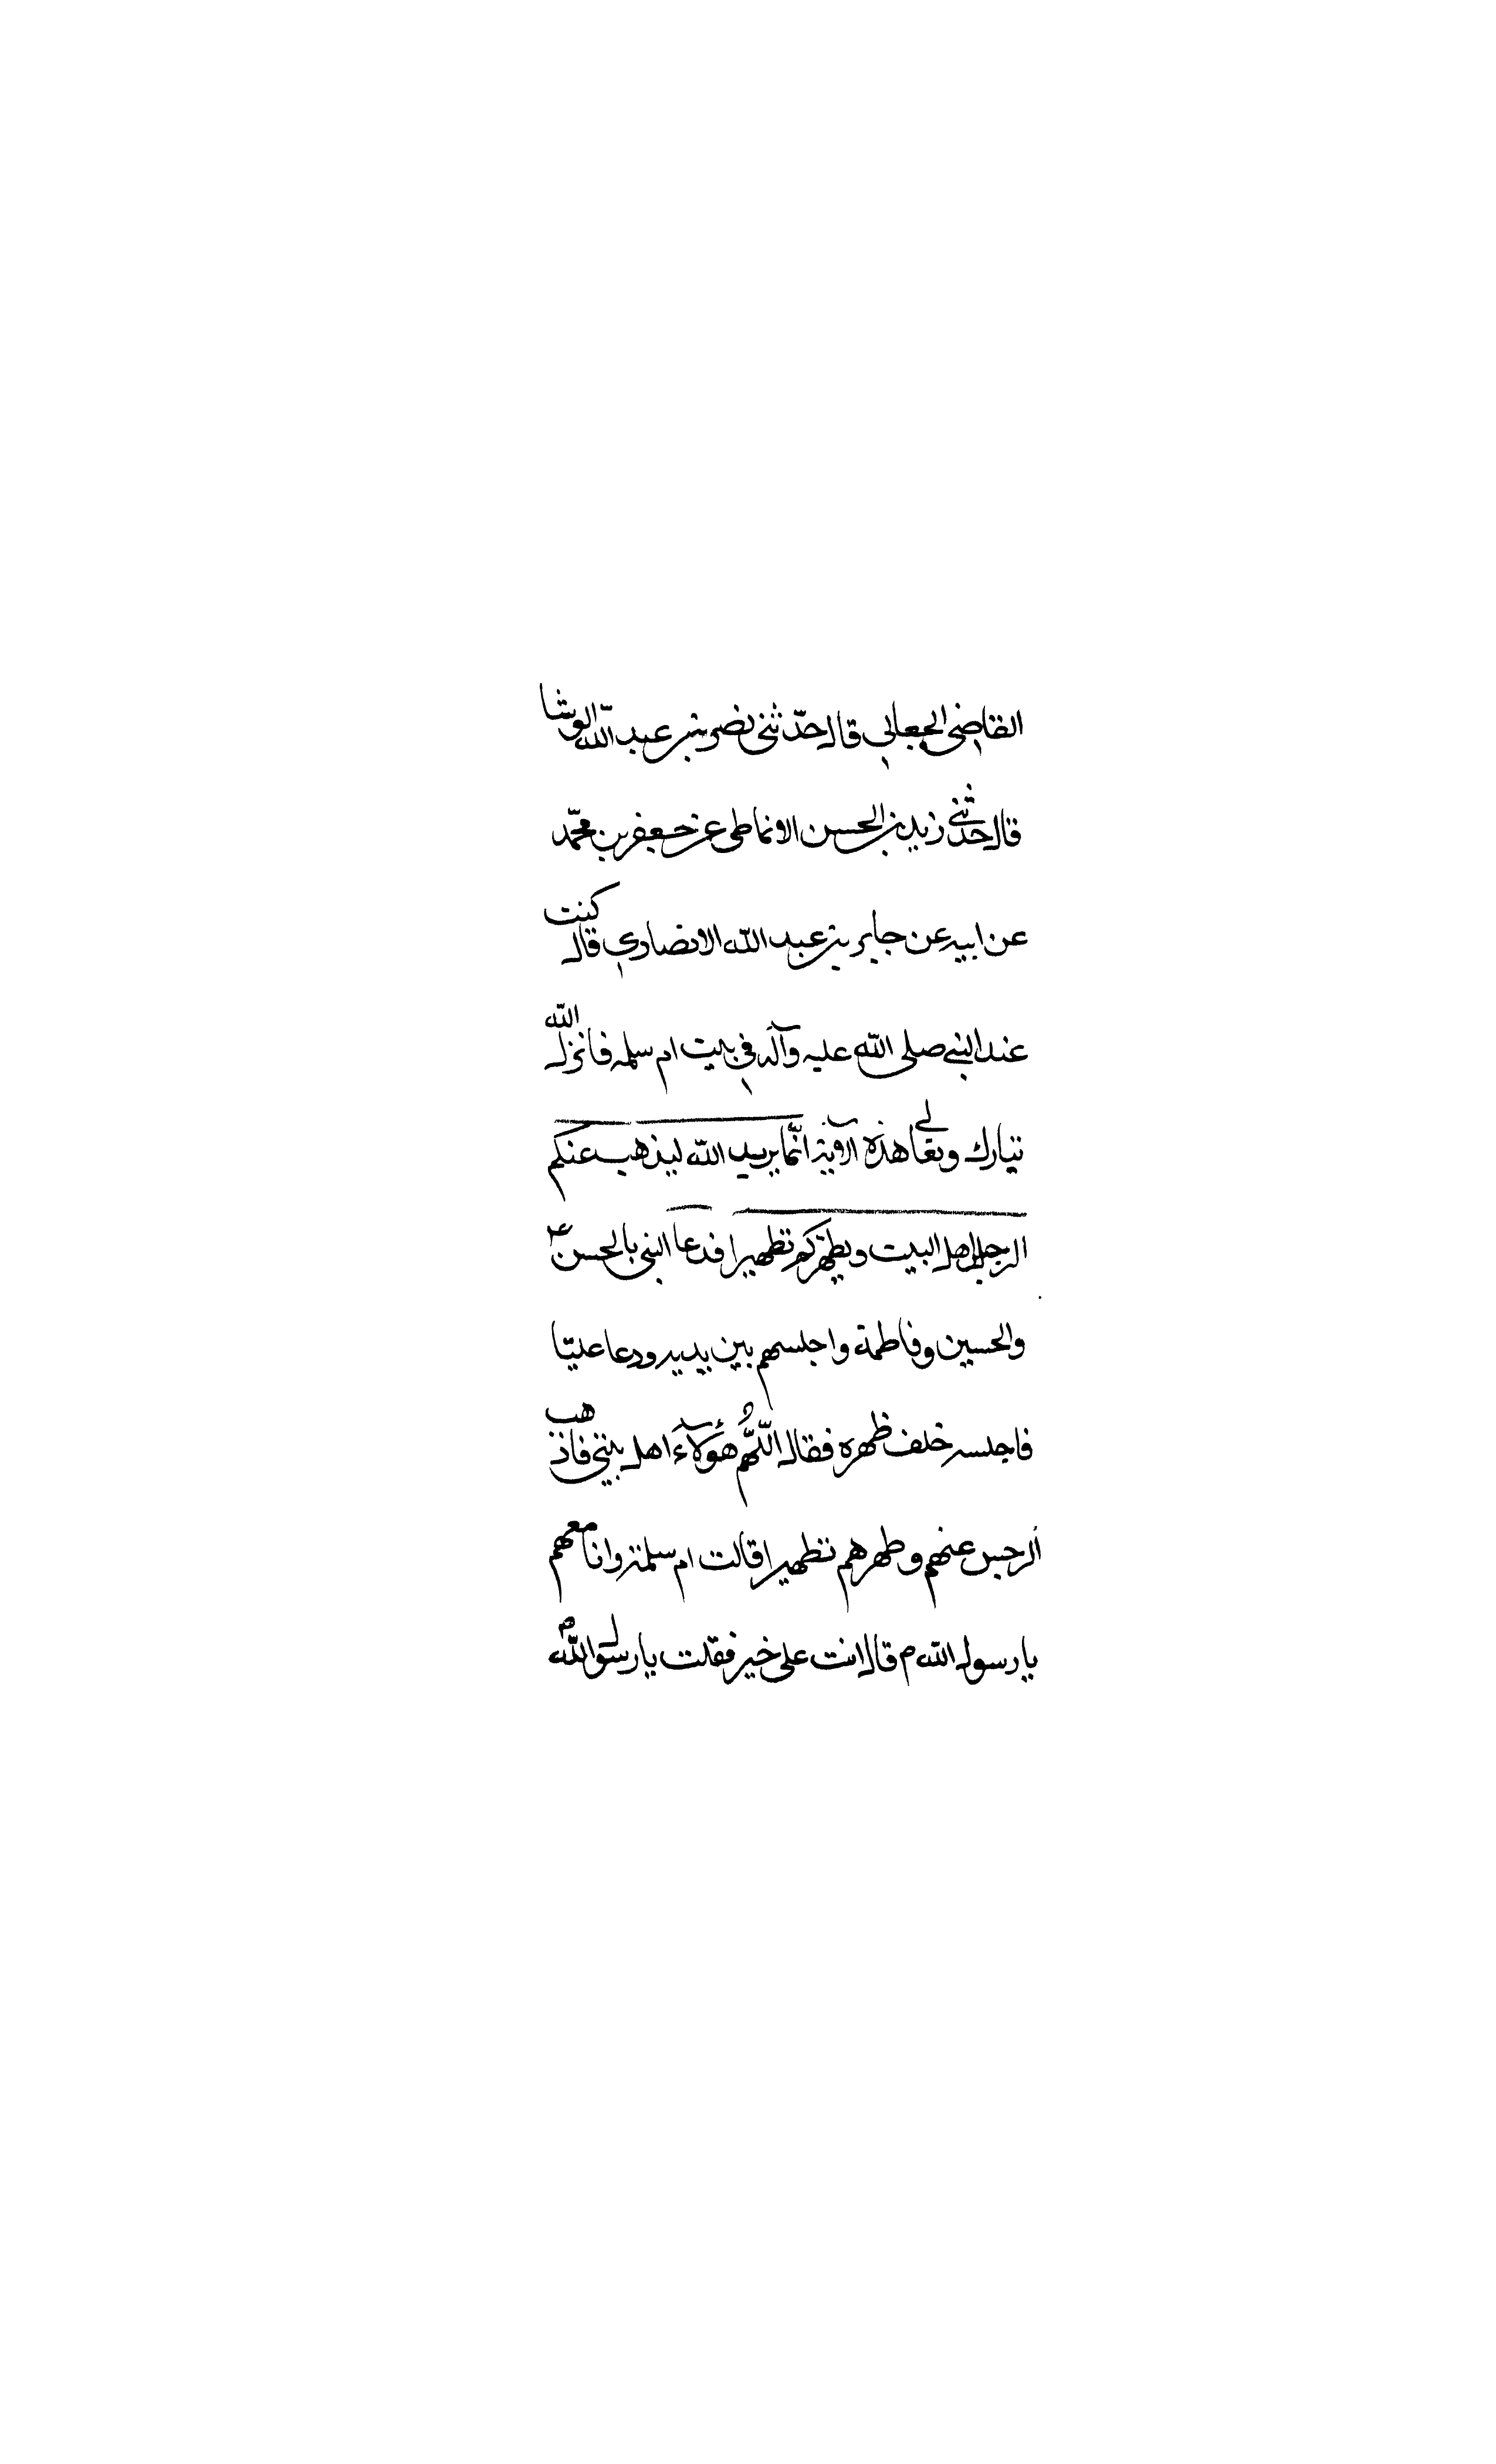 القاضي الجعابي قال حدّثني نضر بن عبد الله الوشا
قال حدثني زيد بن الحسن الانماطي عن جعفر بن محمّد
عن ابيه عن جابر بن عبد الله الانصاري قال كنت
عند النبي صلى الله عليه وآله في بيت ام سلمه فانزل الله
تبارك وتعالى هذه الآية انّما يريد الله ليذهب عنكم
الرجس اهل البيت ويطهركم تطهيرا فدعا النبي بالحسن ع
والحسين وفاطمة واجلسهم بين يديه ودعا عليّا
فاجلسه خلف ظهره فقال اللّهمّ هؤلآء اهل بيتي فاذهب
الرجس عنهم وطهرهم تطهيرا قالت ام سلمة وانا معهم
يا رسول الله م قال انت على خير فقلت يا رسول الله ص